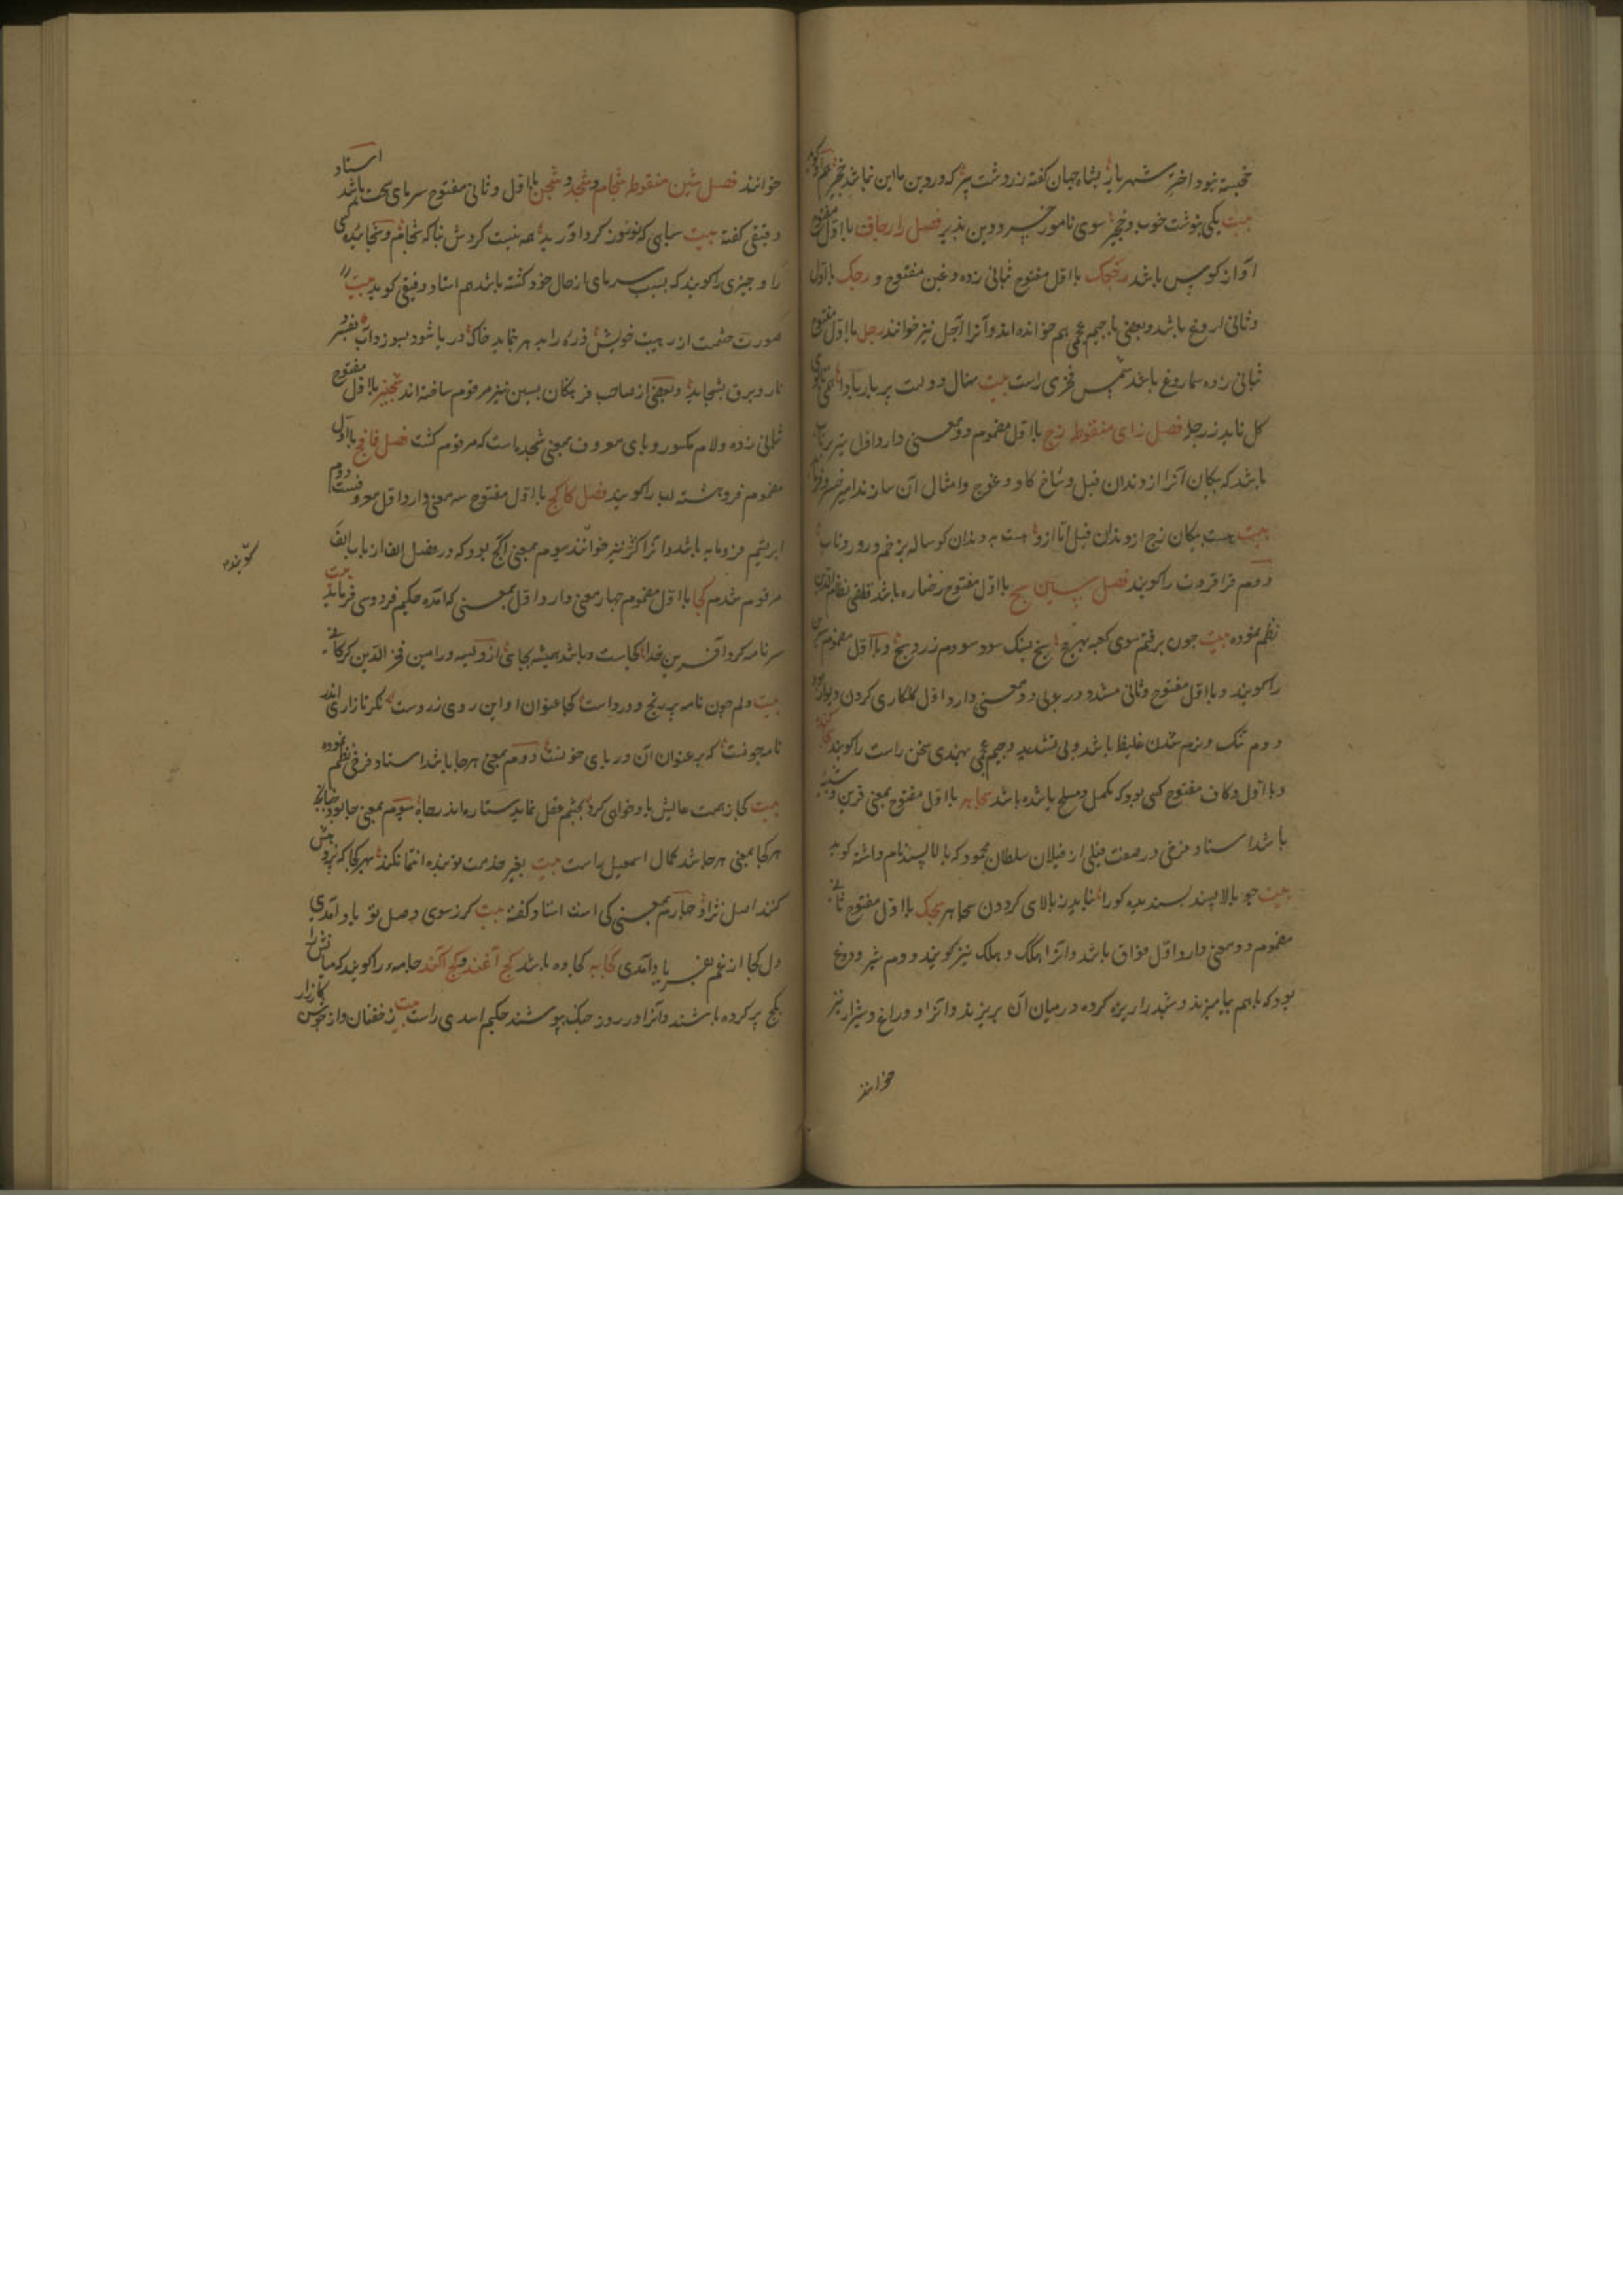 خجسته بود اختر شهریار بشاه جهان گفته زردشت پیر که در دین ما این نباشد
بیت یکی نوشت خوب و هجیر سوی نامور خسرو دین پذیر فصل را رجاف با اول مفتوح
آواز کوس باشد رجغک با اول مفتوح بثانی زده و غین مفتوح و رجک با اول
و ثانی اروغ باشد و بعضی با جیم عجمی هم خوانده اند و آنرا آجل نیز خوانند رجل با اول مفتوح
بثانی زده سماروغ باشد شمس فخری راست بیت نهال دولت
کل ناید ز رجله فصل زای منقوطه زج با اول مضموم دو معنی دارد اول تیر پرتاب
باشد که پیکان آنرا از دندان فیل و شاخ کاو و غوج و امثال آن سازند امیر خسرو
بیت پیکان زج از دندان فیل به دندان کوساله بزخم
دوم قراقروت را گویند فصل سین سج با اول مفتوح رخساره باشد نظام الدین
نظم نموده بیت چون برفتم سوی کعبه رخ بسنگ سود سودم زر و سج و با اول مضموم
را گویند و با اول مفتوح و ثانی مشدد در عربی دو معنی دارد اول گلکاری کردن دیوار بود
دوم تنک و نرم شدن غلیظ باشد و بی تشدید و جیم عجمی بهندی سخن راست را گویند
و با اول و کاف مفتوح کسی بود که مکمل و مسلح باشد سجاهر با اول مفتوح بمعنی قرین و شبیه
باشد استاد فرخی در صفت فیلی از فیلان سلطان محمود که بالا پسند نام داشته گوید
بیت چو بالا پسند پسندیده کورا نیابد ز بالای گردون سجاهر سجک با اول مفتوح ثانی
مضموم دو معنی دارد اول فواق باشد و آنرا اهکک و هکک نیز گویند دوم شیر و دوغ
بود که باهم بیامیزند و شبد را ریزه کرده در میان آن بریزند و آنرا دوراغ و شیراز نیز
خوانند
خوانند فصل شین منقوطه شجام و شجد و شجن با اول و ثانی مفتوح سرمای سخت باشد استاد
دقیقی گفته بیت سپاهی که نوروز گرد آورید همه نیست کردش ناگه شجام و شجاییده کسی
را و چیزی را گویند که بسبب سرمای از حال خود گشته باشد هم استاد دقیقی گوید بیت
صورت خشمت ار هیبت خویش ذره را به بخاک در باشود بسوزد آب بفسرد
نار و برق بشجاید و بعضی از صاحب فرهنگان بسین نیز مرقوم ساخته اند شجلیز با اول مفتوح
ثانی زده و لام مکسور و یای معروف بمعنی شجد است که مرقوم گشت فصل فا فج با اول
مضموم فروهشته لب را گویند فصل کاف کج با اول مفتوح سه معنی دارد اول معروفست دوم
ابریشم فرومایه باشد و آنرا کژ نیز خوانند سیوم بمعنی آکج بود که در فصل الف از باب الف
گویند
مرقوم شد کجا با اول مضموم چهار معنی دارد اول بمعنی که آمده حکیم فردوسی فرماید بیت
سرنامه کرد آفرین خدا کجا هست و باشد همیشه بجای از ویسه و رامین فخر الدین گرگانی
بیت دلم چون نامه پر رنج و درد است کجا عنوان او این روی زردست نگر تا زاری اندر
نامه چونست که بر عنوان آن دریای خونست دوم بمعنی هرجا باشد استاد فرخی نظم نموده
بیت کجا ز همت عالیش یاد خواهی کرد بچشم عقل نماید ستاره اندر چاه سیوم بمعنی جا بود چنانچه
هر کجا بمعنی هرجا باشد کمال اسمعیل راست بیت بغیر خدمت تو بنده انتما نکند بهر کجا که برو پیش
کنند اصل نژاد چهارم بمعنی کی است استاد گفته بیت گر ز سوی وصل تو باد آمدی
دل کجا از غم بفریاد آمدی کجابه کجاوه باشد کج آغند و کج آکند جامه را گویند که میانش را
بکج پر کرده باشند و آنرا در روز جنگ پوشند حکیم اسدی راست بیت ز خفتان و از جوشن کارزار